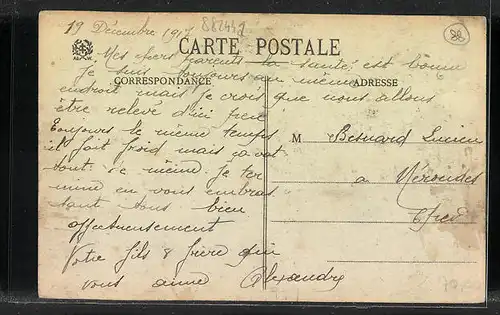 19 Décembre 1917
882442
CARTE POSTALE
Mes chers parents la santé est bonne
Je suis toujours au même
CORRESPONDANCE
ADRESSE
endroit mais je crois que nous allons
être relevé d'ici
Toujours le même temps
il fait froid mais ça va
tout de même. Je ter
mine en vous embras
sant tous bien
affectueusement
Votre fils & frère qui
vous aime Alexandre
M Besnard Lucien
a